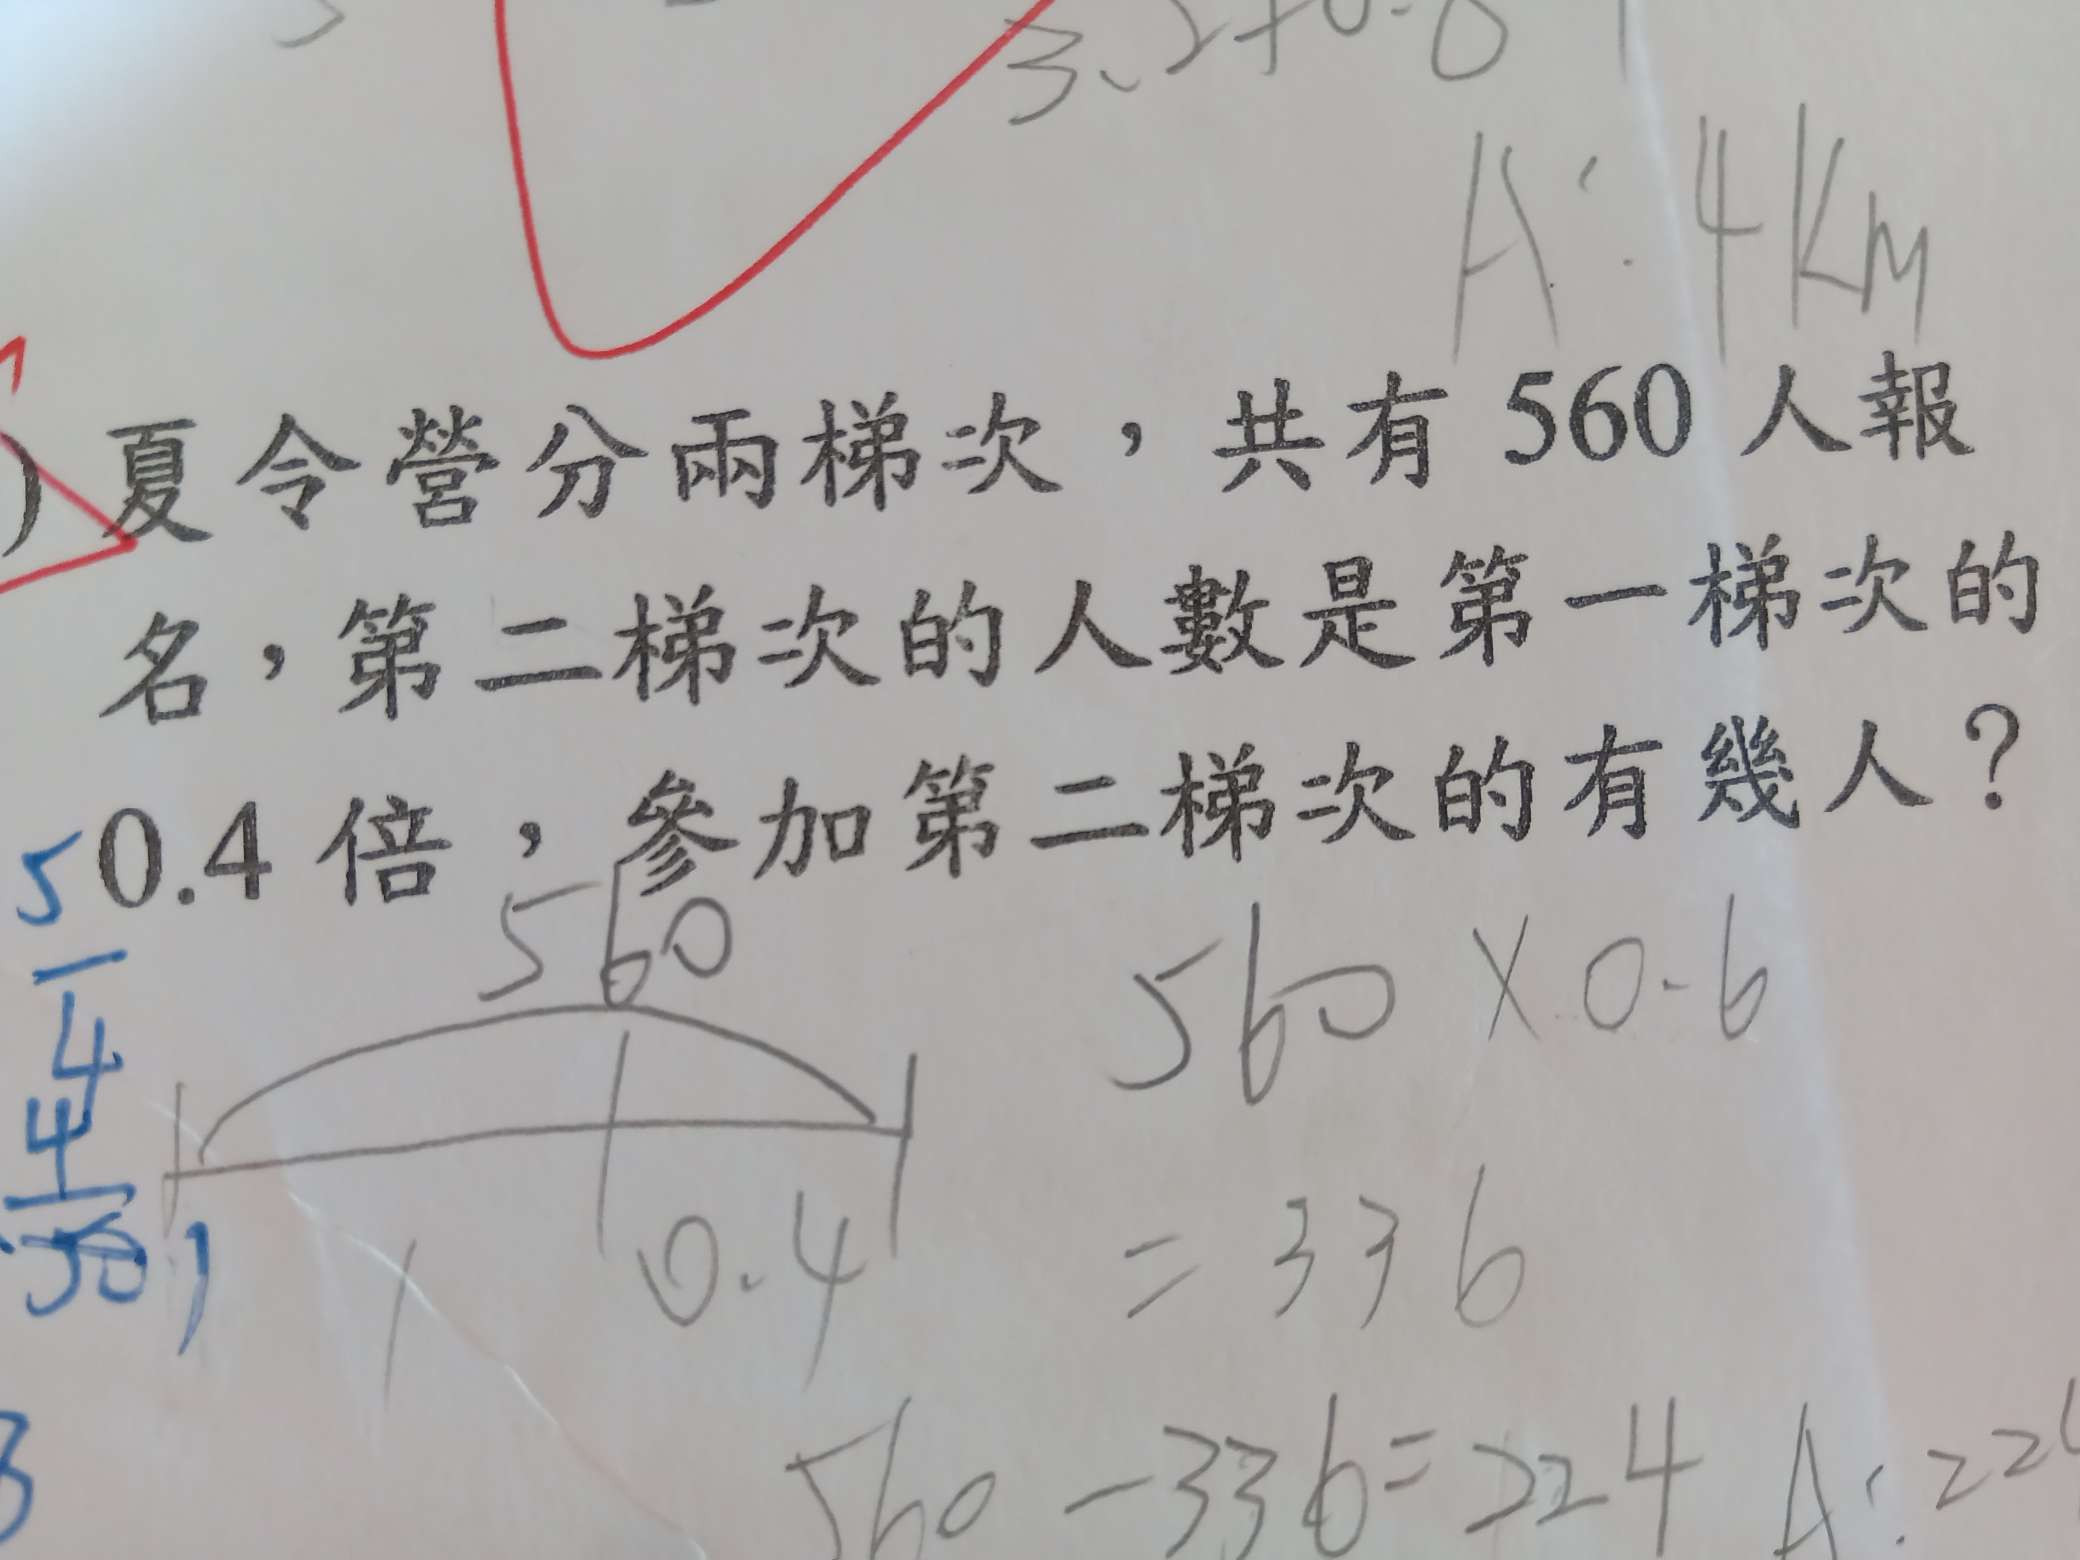 A：4Km
夏令營分兩梯次，共有 560 人報
名，第二梯次的人數是第一梯次的
0.4 倍，參加第二梯次的有幾人？
560
560 × 0.6
1 0.4
= 336
560 - 336 = 224 A：224